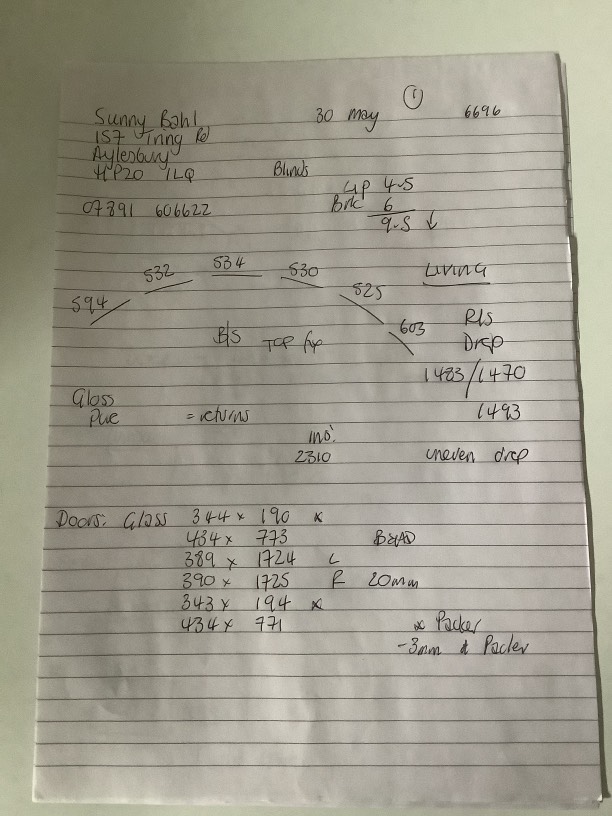 ①
Sunny Bahl 30 May 6696
157 Tring Rd
Aylesbury
HP20 1LQ Blinds
4P 4.5
07891 606622 Brk 6
9.5 ↓
594 532 534 530 525 603
Living
B/s Top fix
R/s
Drop
1483/1470
Gloss
PVC = returns 1493
ins.
2310 uneven drop
Doors: Glass 344 x 190 x
434 x 773 BEAD
389 x 1724 L
390 x 1725 R 20mm
343 x 194 x
434 x 771 x Packer
-3mm x Packer